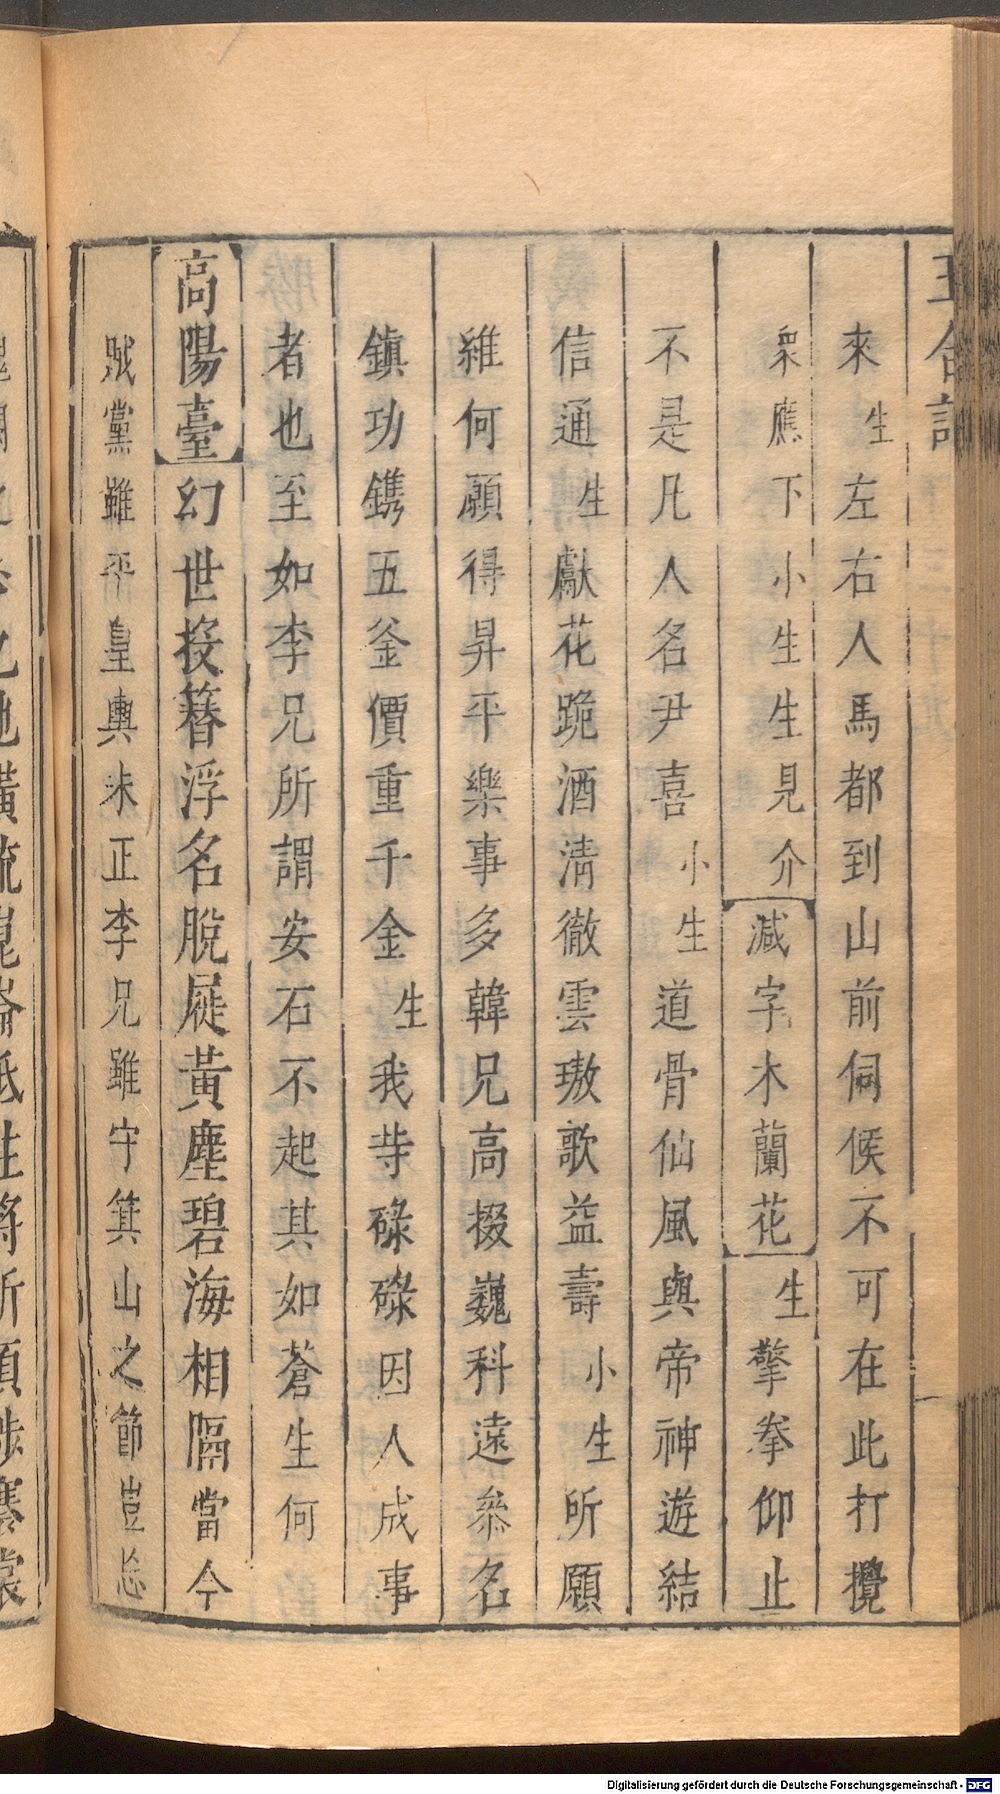 玉合記
來生左右人馬都到山前伺候不可在此打攪
衆應下小生生見介減字木蘭花生擎拳仰止
不是凡人名尹喜小生道骨仙風與帝神遊結
信通生獻花跪酒清徹雲璈歌益壽小生所願
維何願得昇平樂事多韓兄高掇巍科遠叅名
鎮功鐫五釜價重千金生我䒭碌碌因人成事
者也至如李兄所謂安石不起其如蒼生何
高陽臺幻世投簪浮名脫屣黃塵碧海相隔當今
賊黨雖平皇輿未正李兄雖守箕山之節豈忘
Digitalisierung gefördert durch die Deutsche Forschungsgemeinschaft - DFG